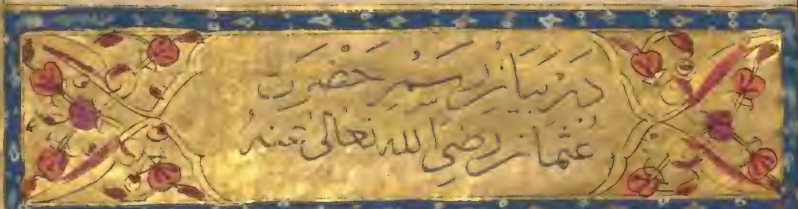 دَرْ بَيَانِ اِسْمِ حَضْرَت
عُثْمَان رَضِيَ الله تَعَالىٰ عَنهُ